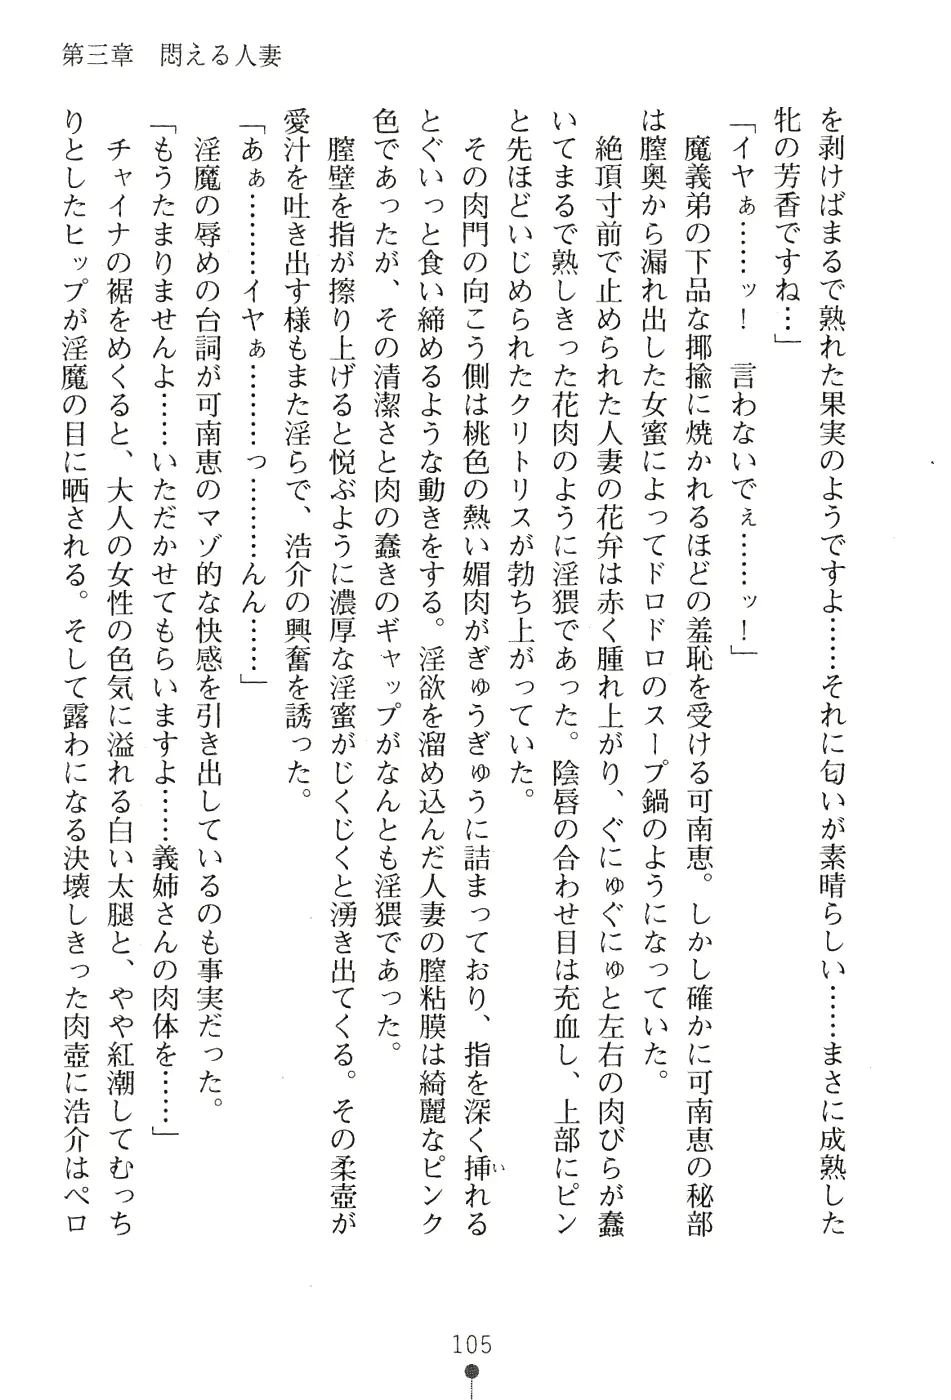 第三章　悶える人妻
を剥けばまるで熟れた果実のようですよ……それに匂いが素晴らしい……まさに成熟した
牝の芳香ですね…」
「イヤぁ……ッ！　言わないでぇ……ッ！」
　魔義弟の下品な揶揄に焼かれるほどの羞恥を受ける可南恵。しかし確かに可南恵の秘部
は膣奥から漏れ出した女蜜によってドロドロのスープ鍋のようになっていた。
　絶頂寸前で止められた人妻の花弁は赤く腫れ上がり、ぐにゅぐにゅと左右の肉びらが蠢
いてまるで熟しきった花肉のように淫猥であった。陰唇の合わせ目は充血し、上部にピン
と先ほどいじめられたクリトリスが勃ち上がっていた。
　その肉門の向こう側は桃色の熱い媚肉がぎゅうぎゅうに詰まっており、指を深く挿れる
い
とぐいっと食い締めるような動きをする。淫欲を溜め込んだ人妻の膣粘膜は綺麗なピンク
色であったが、その清潔さと肉の蠢きのギャップがなんとも淫猥であった。
　膣壁を指が擦り上げると悦ぶように濃厚な淫蜜がじくじくと湧き出てくる。その柔壺が
愛汁を吐き出す様もまた淫らで、浩介の興奮を誘った。
「あぁ………イヤぁ………っ………んん……」
　淫魔の辱めの台詞が可南恵のマゾ的な快感を引き出しているのも事実だった。
「もうたまりませんよ……いただかせてもらいますよ……義姉さんの肉体を……」
　チャイナの裾をめくると、大人の女性の色気に溢れる白い太腿と、やや紅潮してむっち
りとしたヒップが淫魔の目に晒される。そして露わになる決壊しきった肉壺に浩介はペロ
105